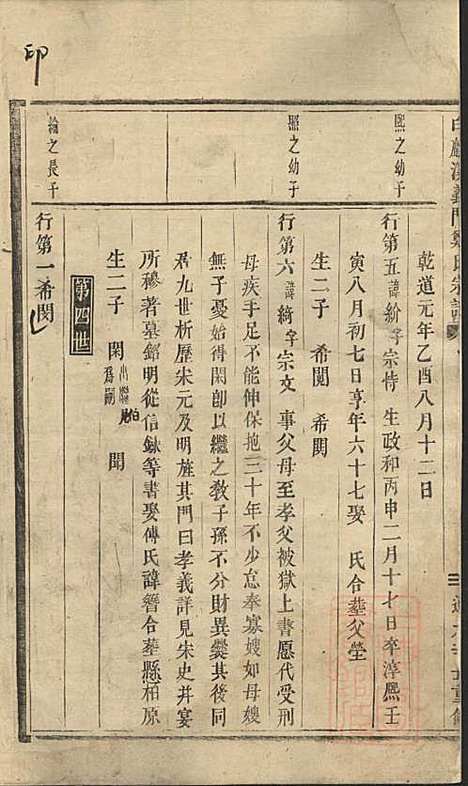 印
白麟溪義門鄭氏宗譜
乾道元年乙酉八月十二日
熙之幼子
行第五諱紛字宗恃 生政和丙申二月十七日卒淳熙壬
寅八月初七日享年六十七娶 氏合葬父塋
生二子 希閱 希閎
照之幼子
行第六諱綺字宗文 事父母至孝父被獄上書愿代受刑
母疾手足不能伸保抱三十年不少怠奉寡嫂如母嫂
無子憂始得閑卽以繼之敎子孫不分財異爨其後同
居九世析歷宋元及明旌其門曰孝義詳見宋史幷宴
所穆著墓銘明從信錄等書娶傅氏諱簪合葬縣柏原
生二子 閑 爲嗣 聞
第四世
綸之長子
行第一希閔